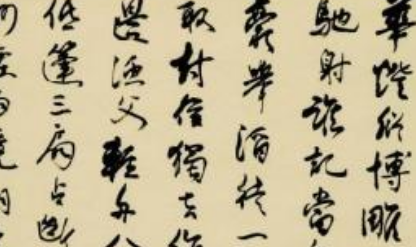 華燈縱博雕
馳射誰記當
豪舉酒徒一
取封侯獨去作
邊漁父輕舟八
低篷三扇占斷